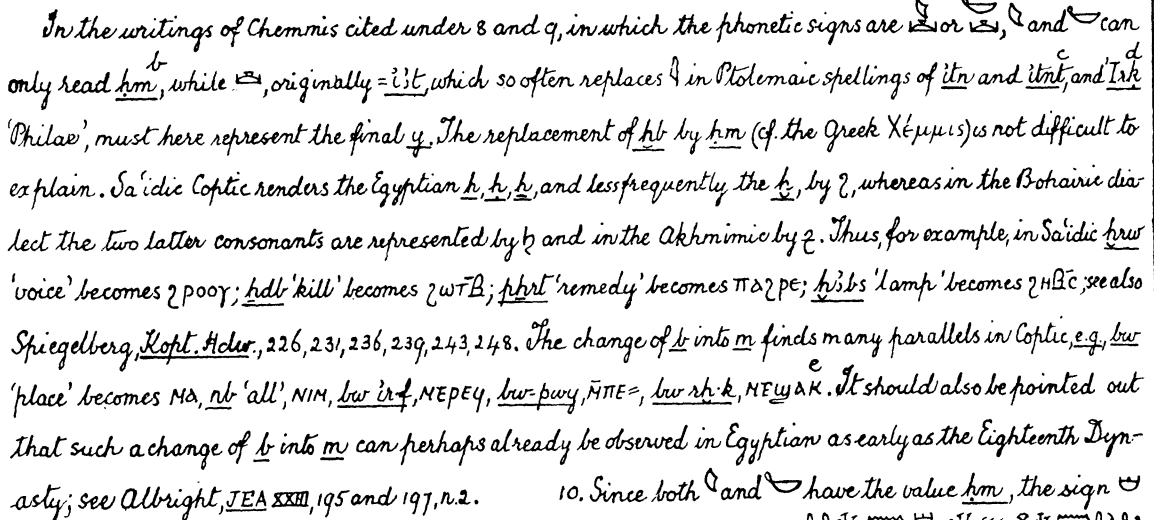 In the writings of Chemmis cited under 8 and 9, in which the phonetic signs are or , and can
only read ḥm ᵇ, while , originally = ı͗ꜣt, which so often replaces in Ptolemaic spellings of ı͗tn and ı͗tnt ᶜ, and ʾIrk ᵈ
'Philae', must here represent the final y. The replacement of ḫb by ḥm (cf. the Greek Χέμμις) is not difficult to
explain. Sa'idic Coptic renders the Egyptian h, ḥ, ẖ, and less frequently the ḫ, by ϩ, whereas in the Bohairic dia-
lect the two latter consonants are represented by ϧ and in the Akhmimic by ⳉ. Thus, for example, in Sa'idic ḫrw
'voice' becomes ϩⲣⲟⲟⲩ; ẖdb 'kill' becomes ϩⲱⲧⲃ̄; pẖrt 'remedy' becomes ⲡⲁϩⲣⲉ; ḫꜣbs 'lamp' becomes ϩⲏⲃ̄ⲥ̄; see also
Spiegelberg, Kopt. Hdw., 226, 231, 236, 239, 243, 248. The change of b into m finds many parallels in Coptic, e.g., bw
'place' becomes ⲙⲁ, nb 'all', ⲛⲓⲙ, bw ı͗r·f, ⲙⲉⲣⲉϥ, bw-pwy, ⲙ̄ⲡⲉ=, bw rḫ·k, ⲙⲉϣⲁⲕ ᵉ. It should also be pointed out
that such a change of b into m can perhaps already be observed in Egyptian as early as the Eighteenth Dyn-
asty; see Albright, JEA XXIII, 195 and 197, n.2. 10. Since both and have the value ḥm, the sign